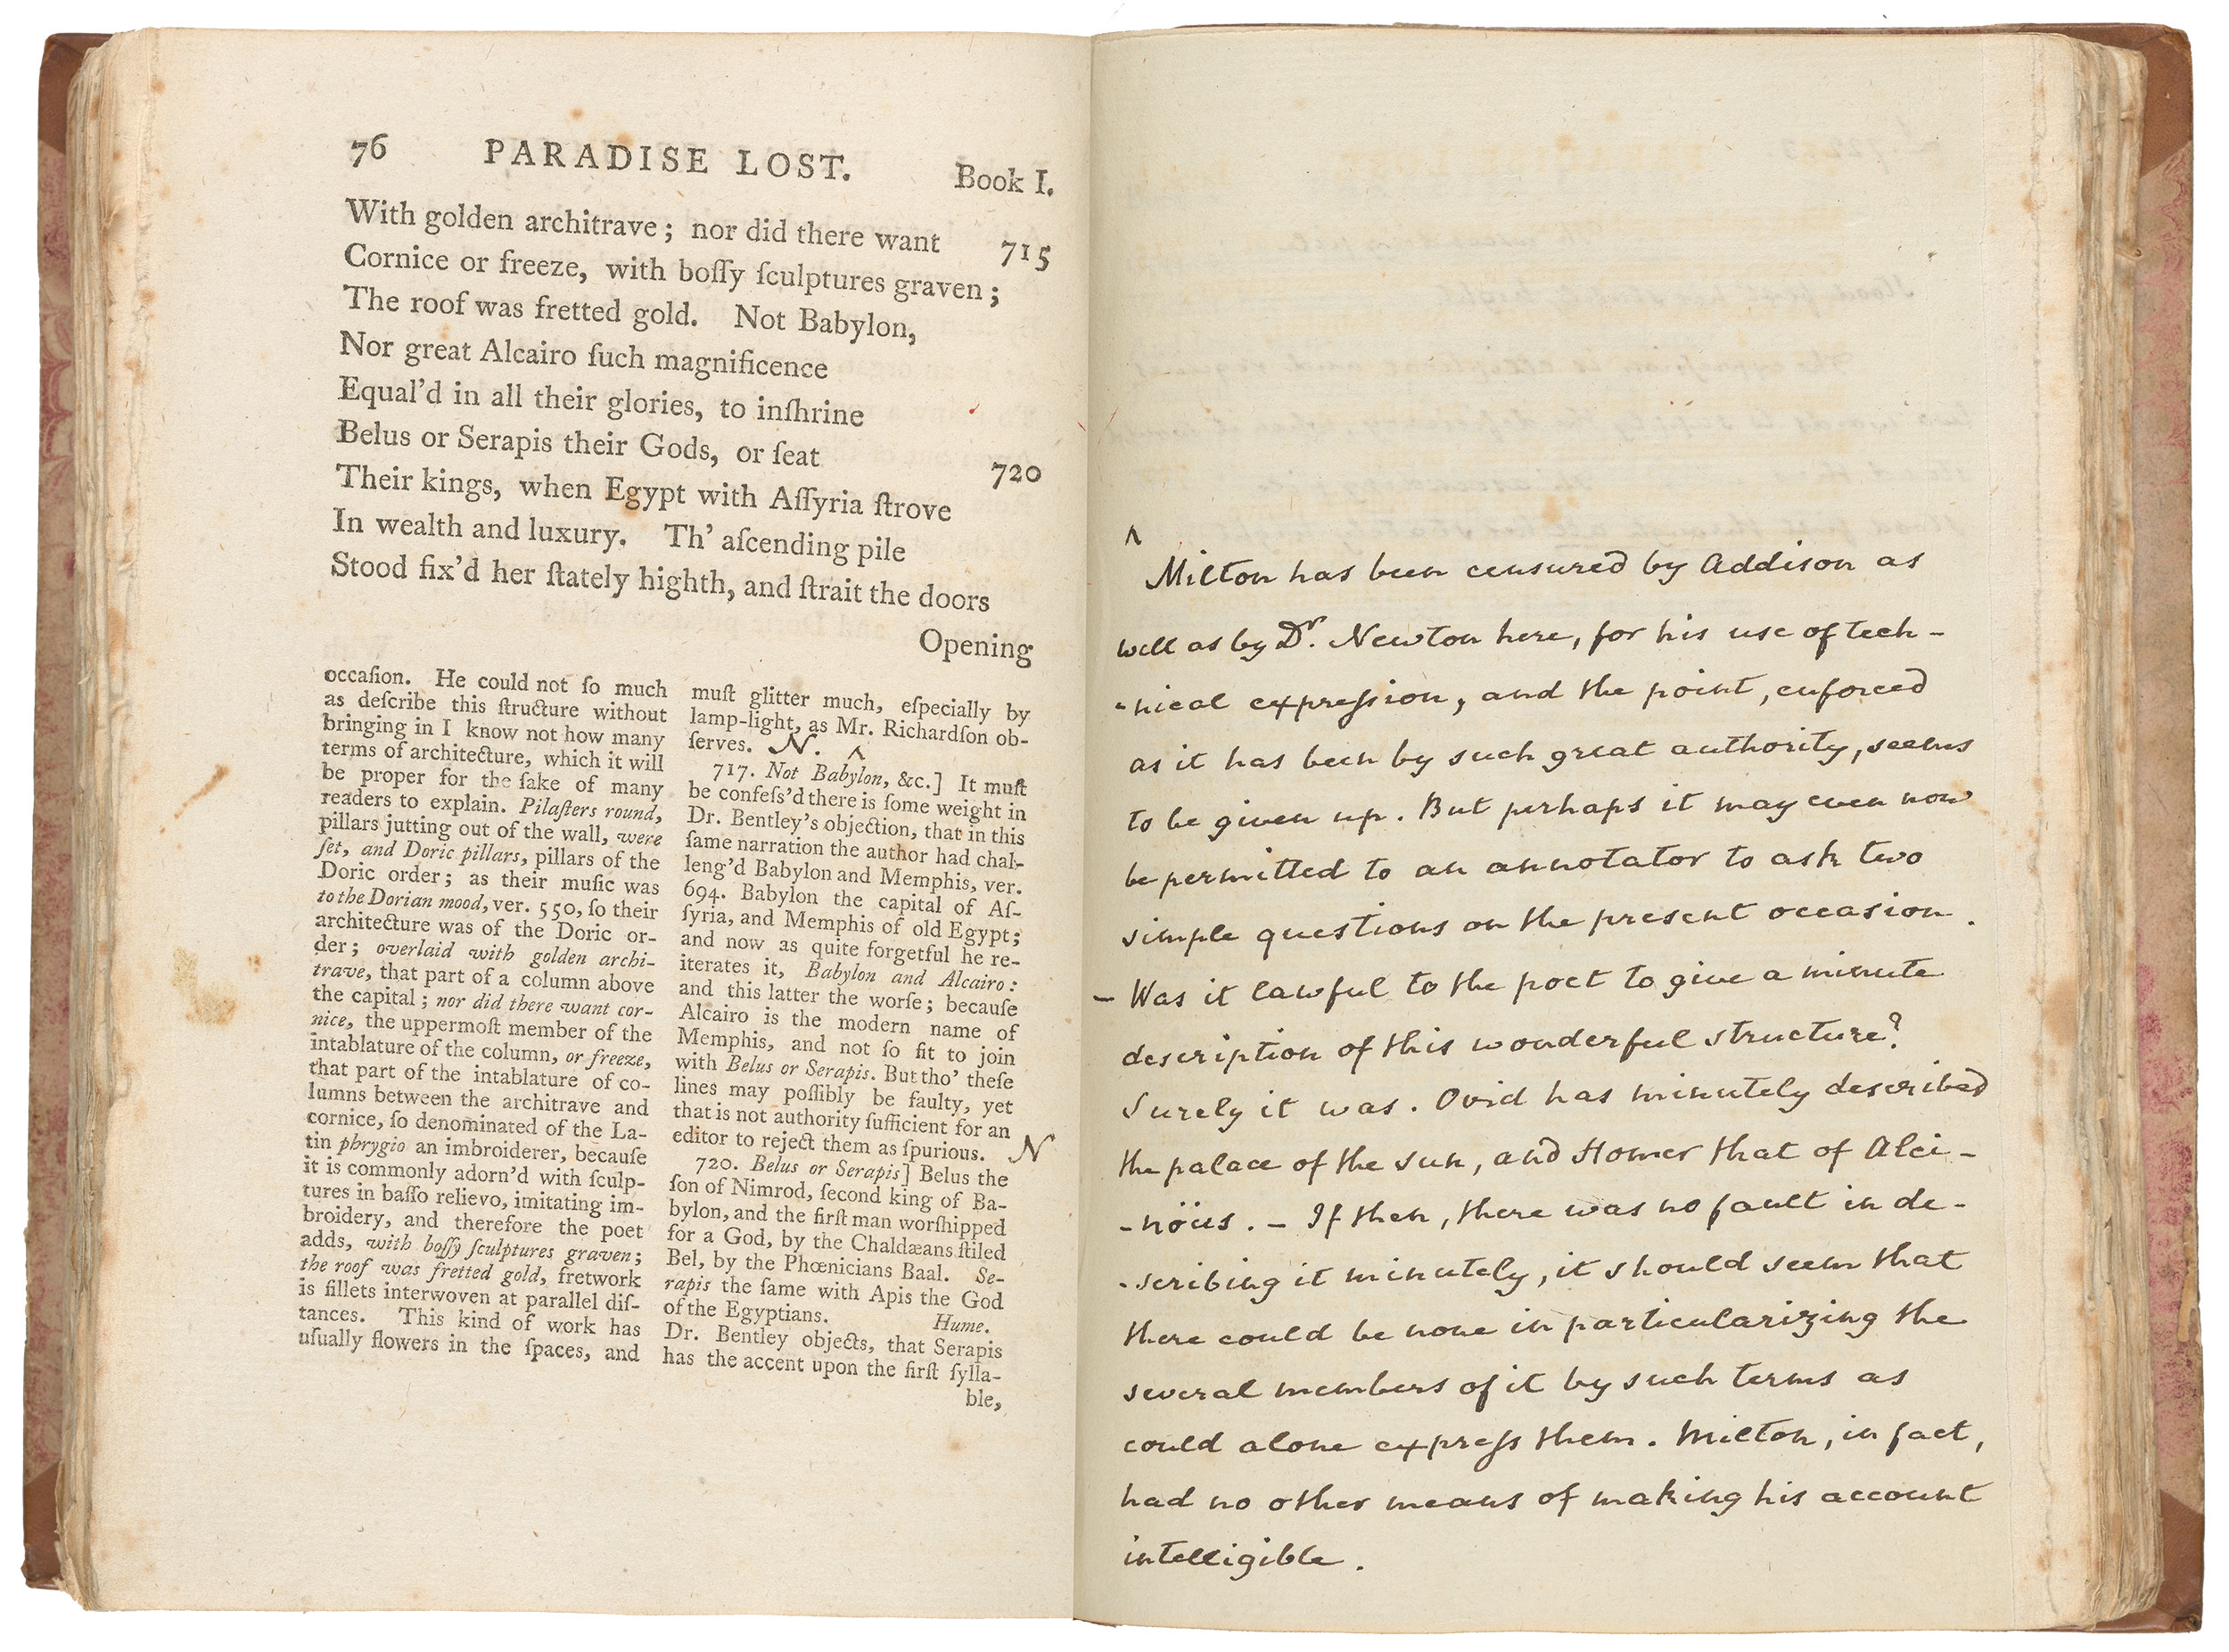 76 PARADISE LOST. Book I.
With golden architrave; nor did there want 715
Cornice or freeze, with boſſy ſculptures graven;
The roof was fretted gold. Not Babylon,
Nor great Alcairo ſuch magnificence
Equal'd in all their glories, to inſhrine
Belus or Serapis their Gods, or ſeat 720
Their kings, when Egypt with Aſſyria ſtrove
In wealth and luxury. Th' aſcending pile
Stood fix'd her ſtately highth, and ſtrait the doors
Opening
occaſion. He could not ſo much
as deſcribe this ſtructure without
bringing in I know not how many
terms of architecture, which it will
be proper for the ſake of many
readers to explain. Pilaſters round,
pillars jutting out of the wall, were
ſet, and Doric pillars, pillars of the
Doric order; as their muſic was
to the Dorian mood, ver. 550, ſo their
architecture was of the Doric or-
der; overlaid with golden archi-
trave, that part of a column above
the capital; nor did there want cor-
nice, the uppermoſt member of the
intablature of the column, or freeze,
that part of the intablature of co-
lumns between the architrave and
cornice, ſo denominated of the La-
tin phrygio an imbroiderer, becauſe
it is commonly adorn'd with ſculp-
tures in baſſo relievo, imitating im-
broidery, and therefore the poet
adds, with boſſy ſculptures graven;
the roof was fretted gold, fretwork
is fillets interwoven at parallel diſ-
tances. This kind of work has
uſually flowers in the ſpaces, and
muſt glitter much, eſpecially by
lamp-light, as Mr. Richardſon ob-
ſerves. N. ^
717. Not Babylon, &c.] It muſt
be confeſs'd there is ſome weight in
Dr. Bentley's objection, that in this
ſame narration the author had chal-
leng'd Babylon and Memphis, ver.
694. Babylon the capital of Aſ-
ſyria, and Memphis of old Egypt;
and now as quite forgetful he re-
iterates it, Babylon and Alcairo:
and this latter the worſe; becauſe
Alcairo is the modern name of
Memphis, and not ſo fit to join
with Belus or Serapis. But tho' theſe
lines may poſſibly be faulty, yet
that is not authority ſufficient for an
editor to reject them as ſpurious. N
720. Belus or Serapis] Belus the
ſon of Nimrod, ſecond king of Ba-
bylon, and the firſt man worſhipped
for a God, by the Chaldæans ſtiled
Bel, by the Phœnicians Baal. Se-
rapis the ſame with Apis the God
of the Egyptians. Hume.
Dr. Bentley objects, that Serapis
has the accent upon the firſt ſylla-
ble,
^
Milton has been censured by Addison as
well as by Dr. Newton here, for his use of tech-
-nical expreſsion, and the point, enforced
as it has been by such great authority, seems
to be given up. But perhaps it may even now
be permitted to an annotator to ask two
simple questions on the present occasion.
- Was it lawful to the poet to give a minute
description of this wonderful structure?
Surely it was. Ovid has minutely described
the palace of the sun, and Homer that of Alci-
-nöus. - If then, there was no fault in de-
-scribing it minutely, it should seem that
there could be none in particularizing the
several members of it by such terms as
could alone expreſs them. Milton, in fact,
had no other means of making his account
intelligible.